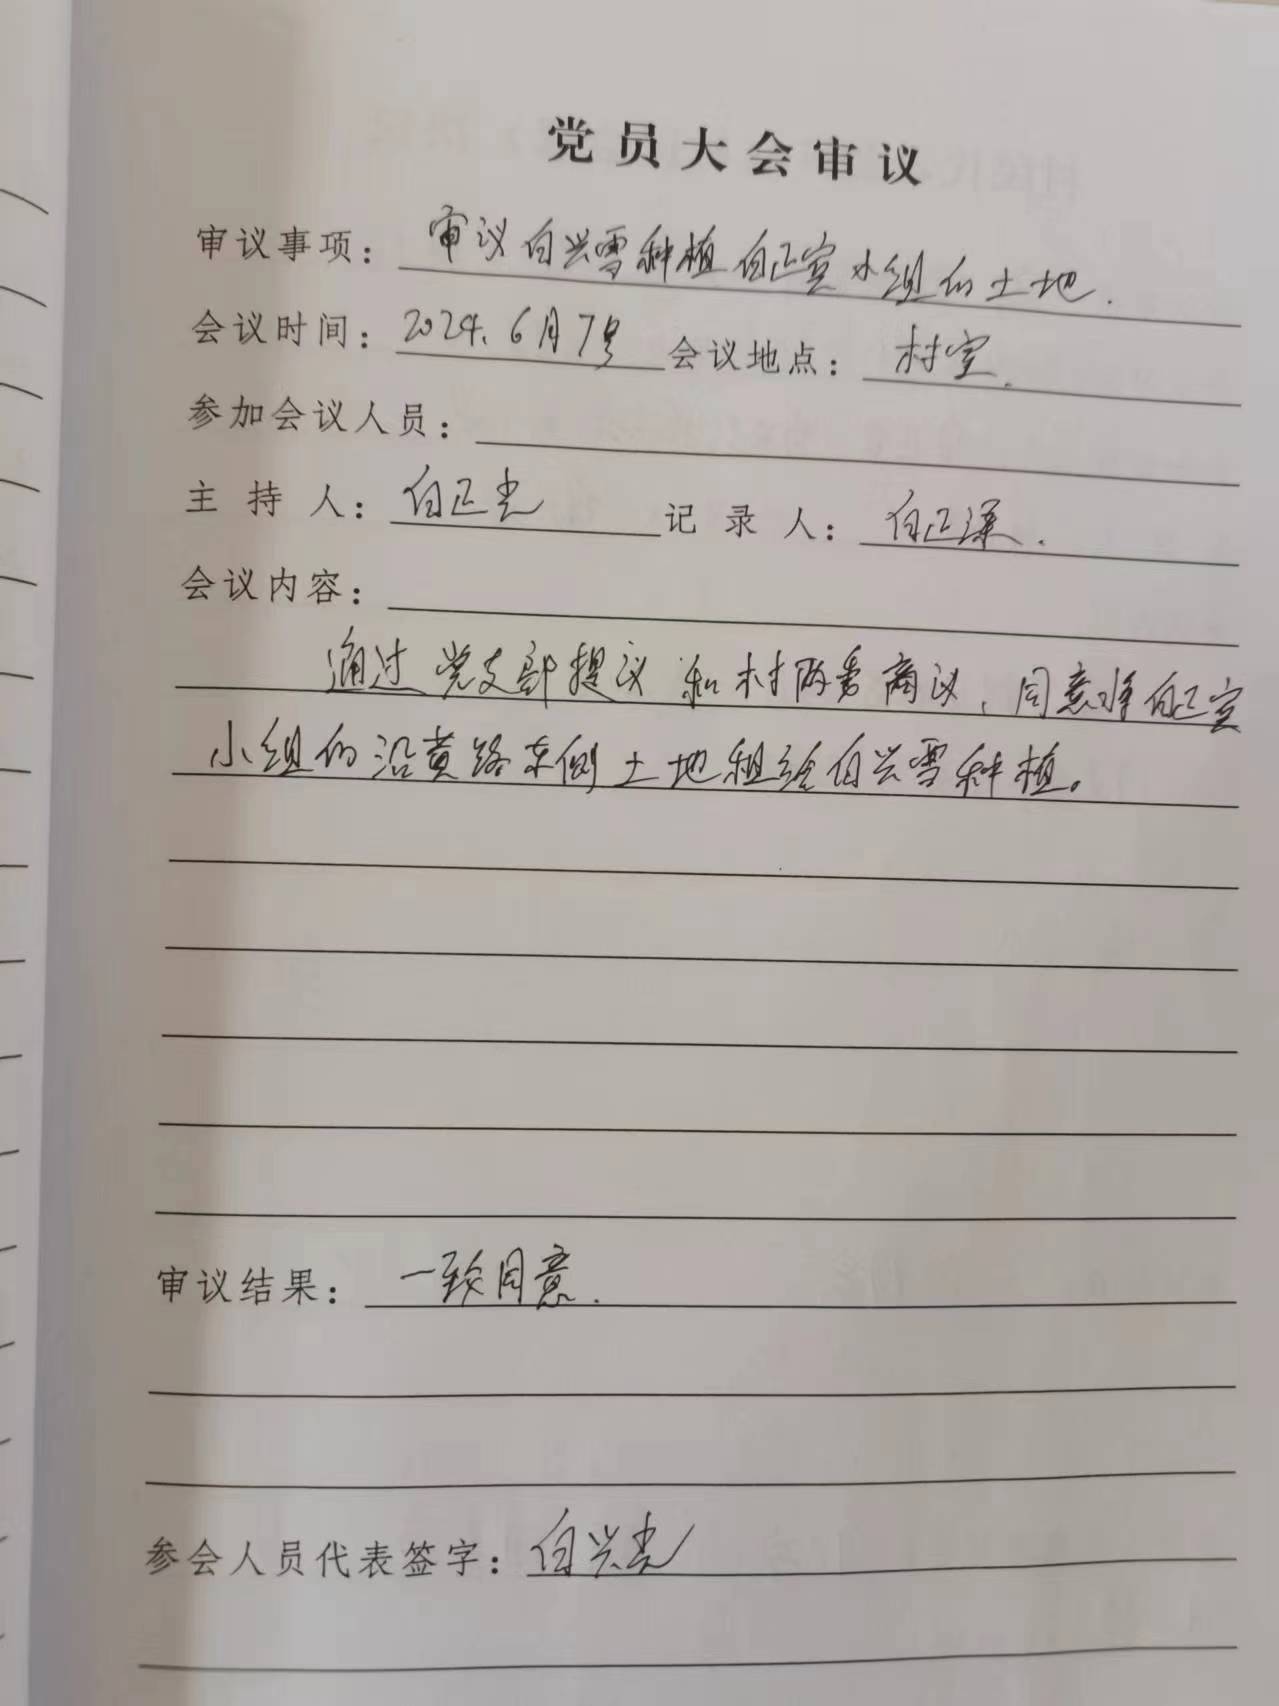 党员大会审议
审议事项：审议白兴雪种植白正宽小组的土地.
会议时间：2024.6月7号 会议地点：村室.
参加会议人员：
主持人：白正光 记录人：白正深.
会议内容：
通过党支部提议和村两委商议，同意将白正宽
小组的沿黄路东侧土地租给白兴雪种植。
审议结果：一致同意.
参会人员代表签字：白兴光